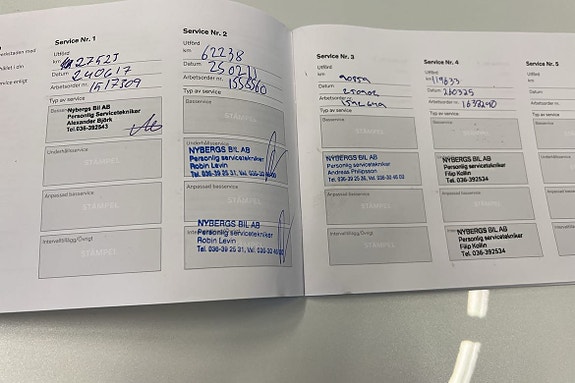 Service Nr. 1
Utförd
km 27523
Datum 240617
Arbetsorder nr. 1517309
Typ av service
Nybergs Bil AB
Personlig Servicetekniker
Alexander Björk
Tel.036-392543
Underhållsservice
STÄMPEL
Anpassad basservice
STÄMPEL
Intervalltillägg/Övrigt
STÄMPEL
Service Nr. 2
Utförd
km 62238
Datum
Arbetsorder nr. 1555560
Typ av service
Basservice
Underhållsservice
NYBERGS BIL AB
Personlig servicetekniker
Robin Levin
Tel. 036-39 25 31, Vxl. 036-30
Anpassad basservice
NYBERGS BIL AB
Personlig servicetekniker
Robin Levin
Tel. 036-39 25 31, Vxl. 036-30
Service Nr. 3
Utförd
km
Datum
Arbetsorder nr.
Typ av service
Basservice
NYBERGS BIL AB
Personlig servicetekniker
Andreas Philipsson
Anpassad basservice
Intervalltillägg/Övrigt
STÄMPEL
Service Nr. 4
Utförd
km 119633
Datum 260325
Arbetsorder nr.
Typ av service
Basservice
STÄMPEL
NYBERGS BIL AB
Personlig servicetekniker
Filip Kollin
Tel. 036-392534
Anpassad basservice
NYBERGS BIL AB
Personlig servicetekniker
Filip Kollin
Tel. 036-392534
Service Nr. 5
Utförd
km
Datum
Arbetsorder nr.
Typ av service
Basservice